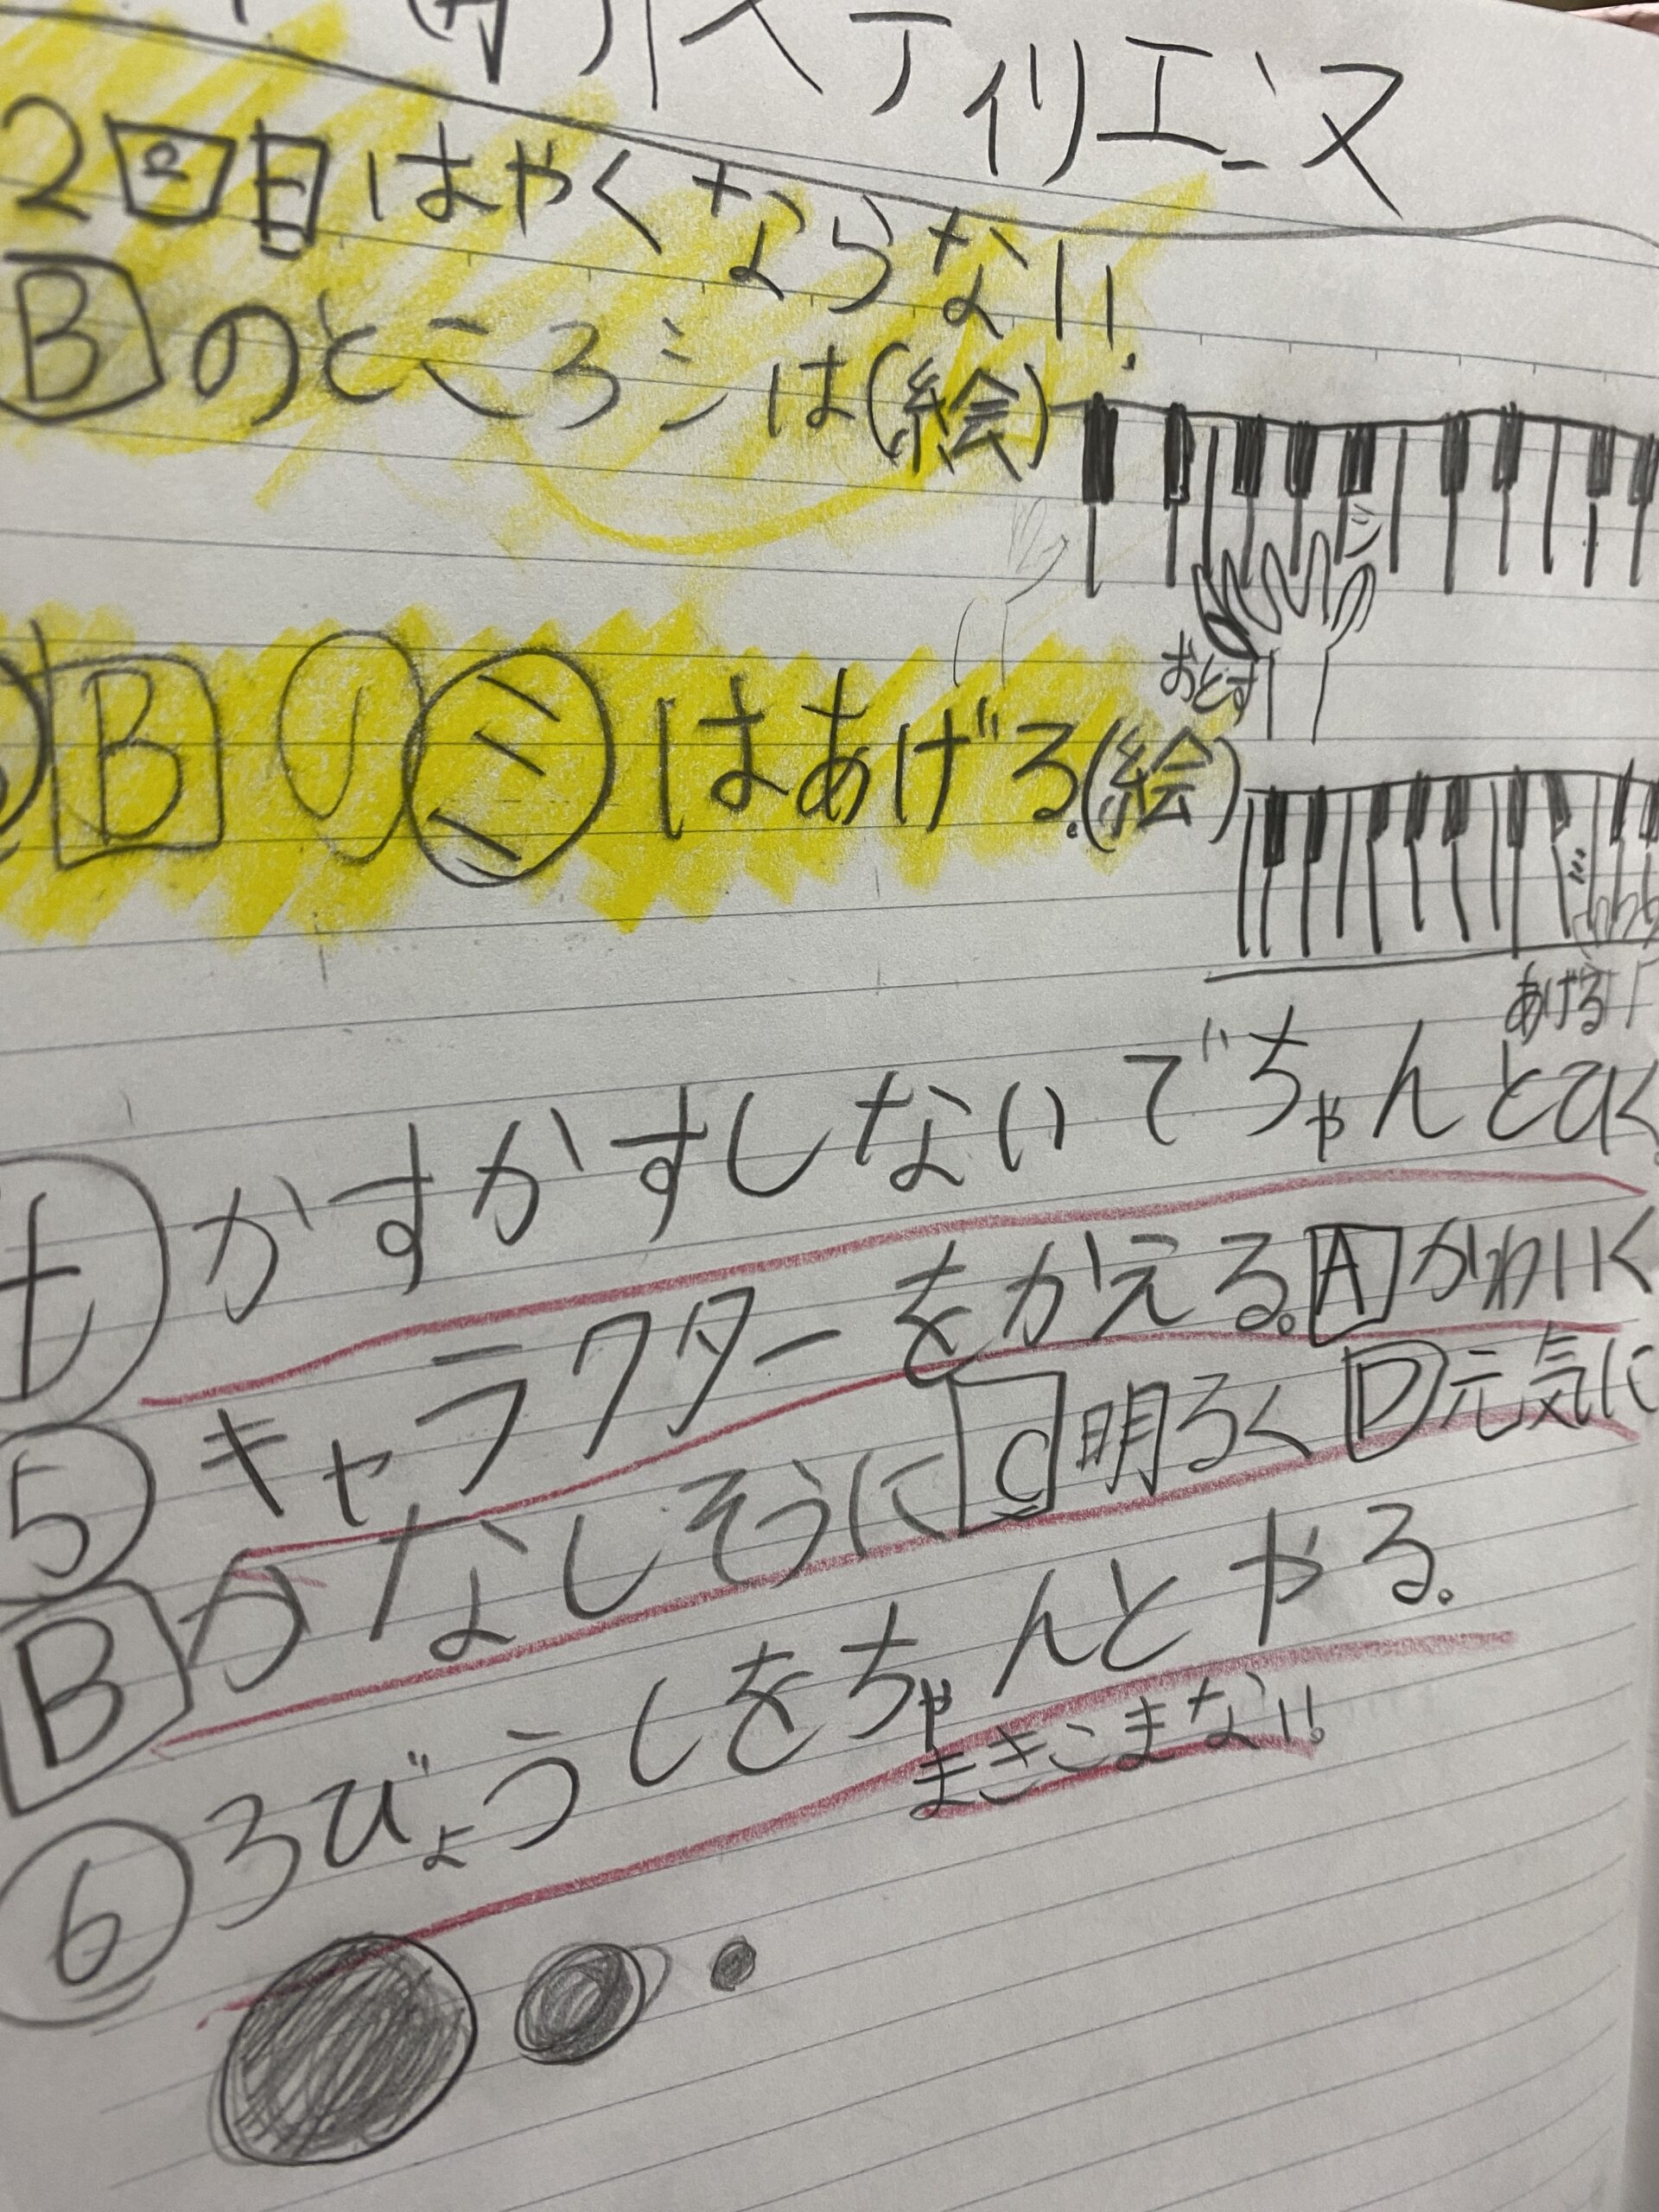 スティリエンヌ
2回目はやくならない!
BのところシはI(絵)
おとす
B ソ ミ はあげる.(絵)
あげる
かすかすしないでちゃんとひく。
⑤キャラクターをかえる。Aかわいく
BかなしそうにC明るくD元気に
⑥3びょうしをちゃんとやる。
まきこまない!